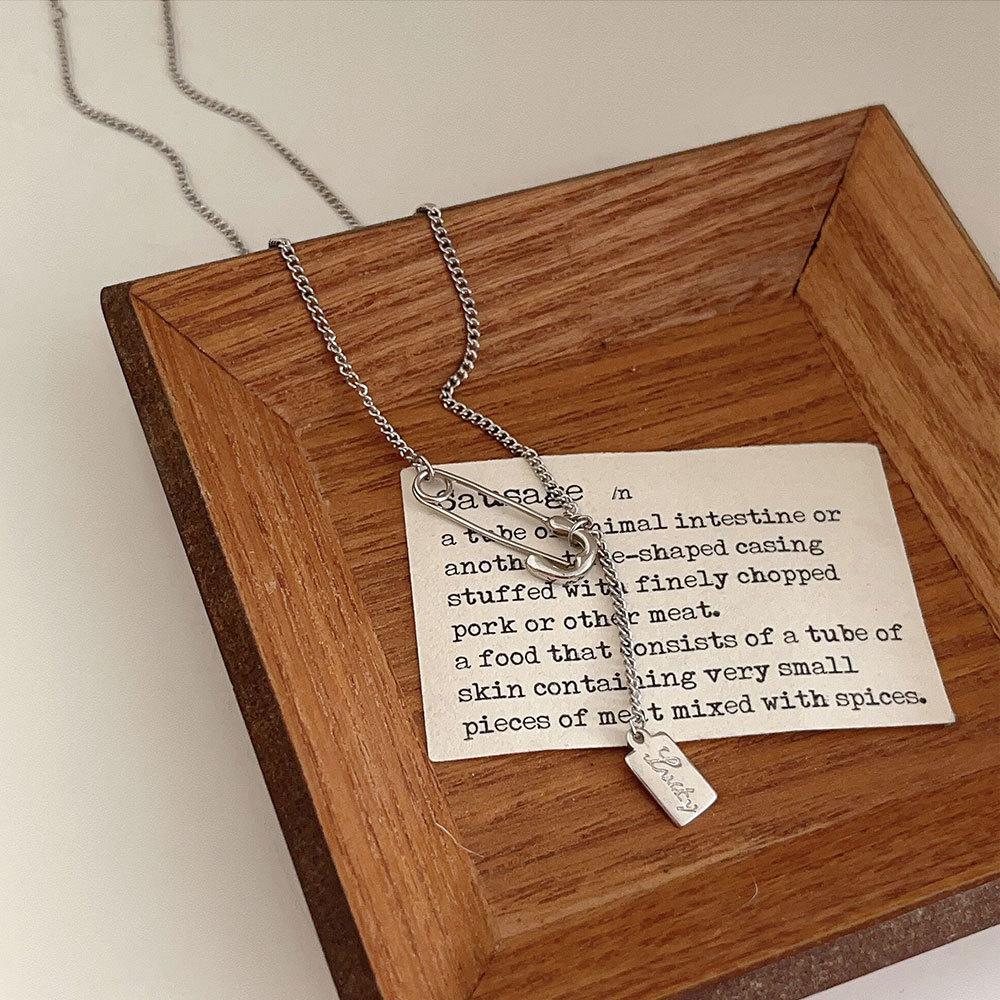 Sausage /n
a tube of animal intestine or
another tube-shaped casing
stuffed with finely chopped
pork or other meat.
a food that consists of a tube of
skin containing very small
pieces of meat mixed with spices.
Lucky